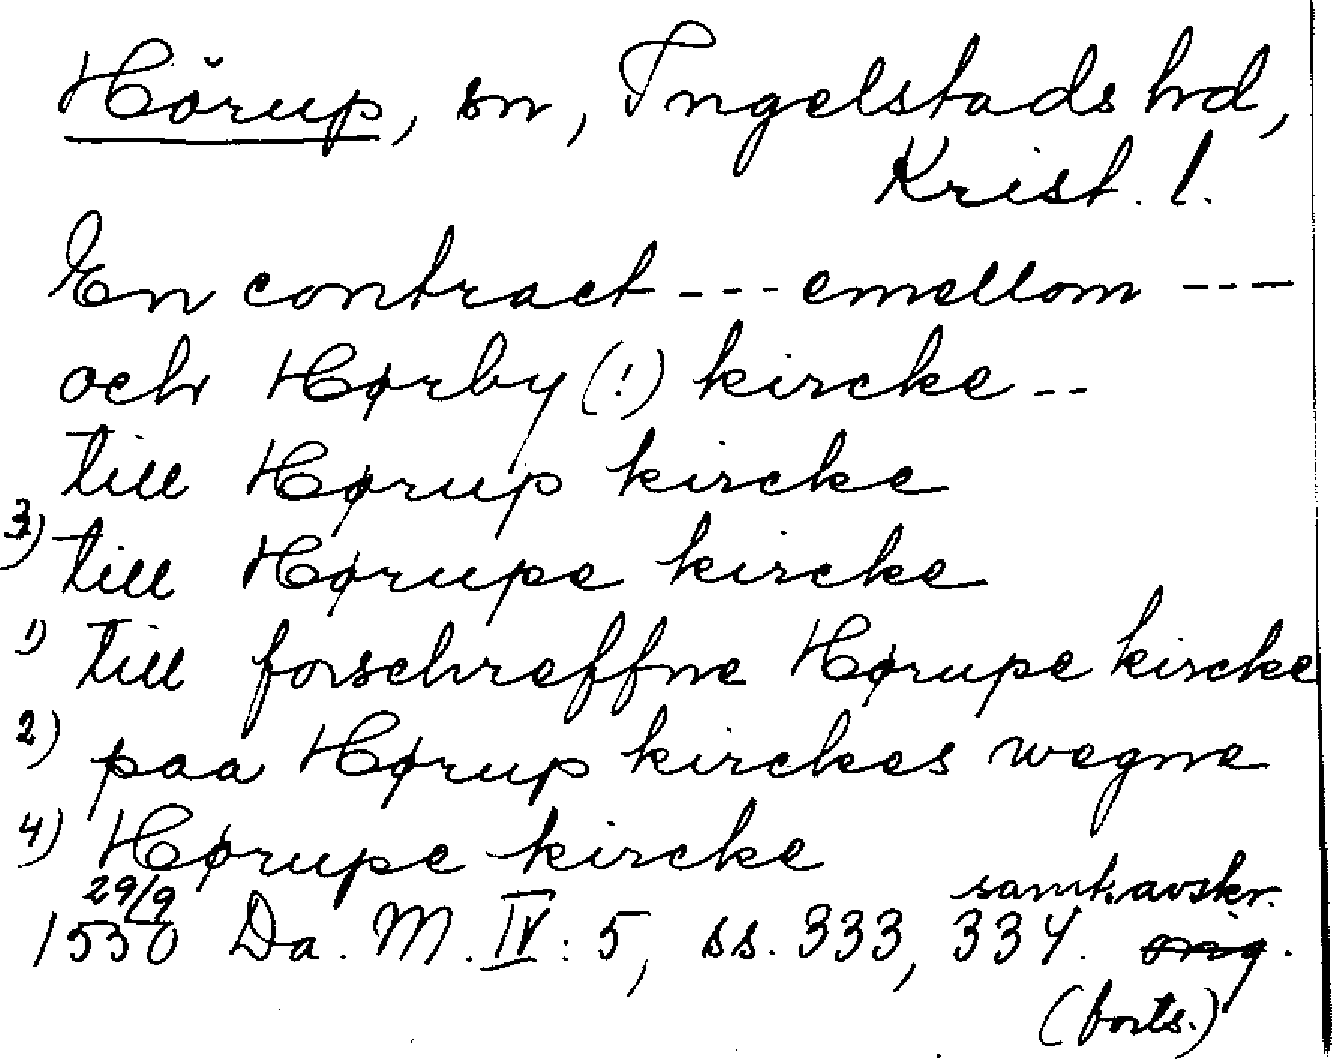 Hörup, sn, Ingelstads hd,
Krist. l.
En contract --- emellom ---
och Hørby (!) kircke --
till Hørup kircke
3) till Hørupe kircke
1) till forschreffne Hørupe kircke
2) paa Hørup kirckes wegne
4) Hørupe kircke
29/9 samt. avskr.
1530 Da. M. IV: 5, ss. 333, 334. orig.
(forts.)